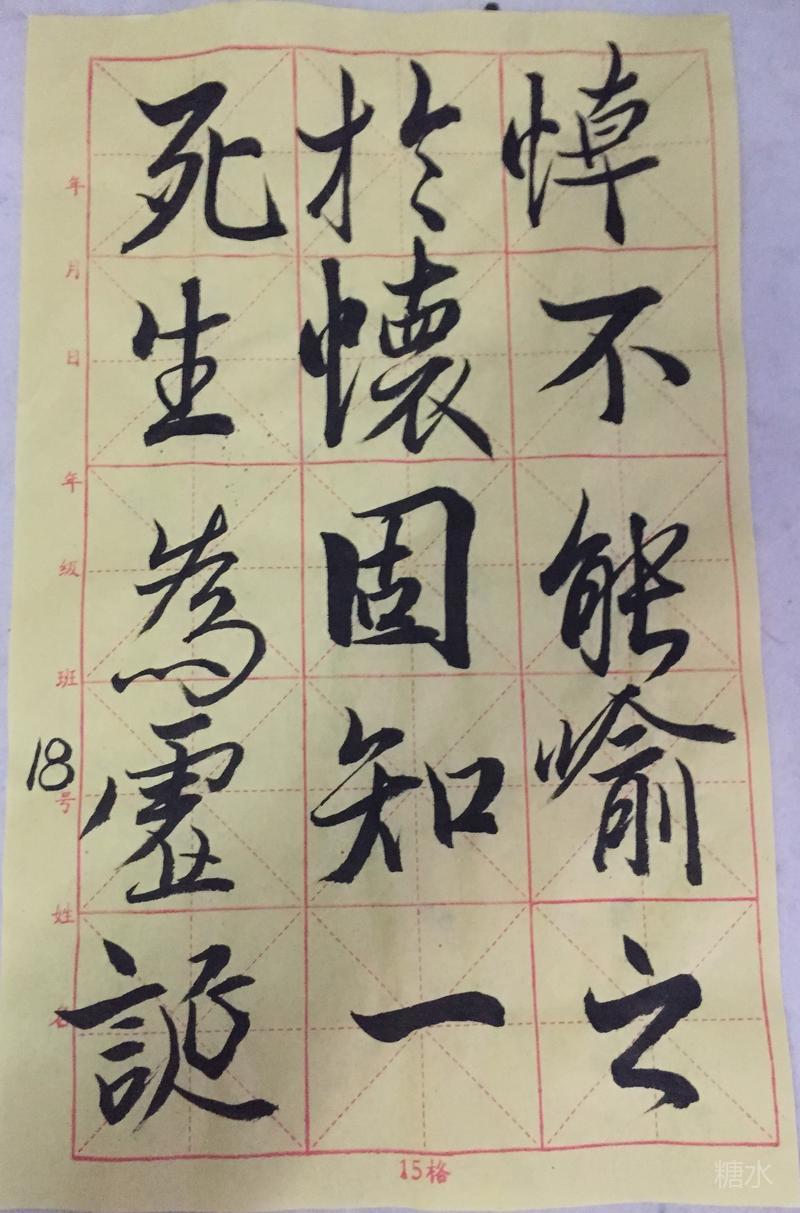 悼不能喻之
於懷固知一
死生為虛誕
年
月
日
年
级
班
18
号
姓
名
15格
糖水